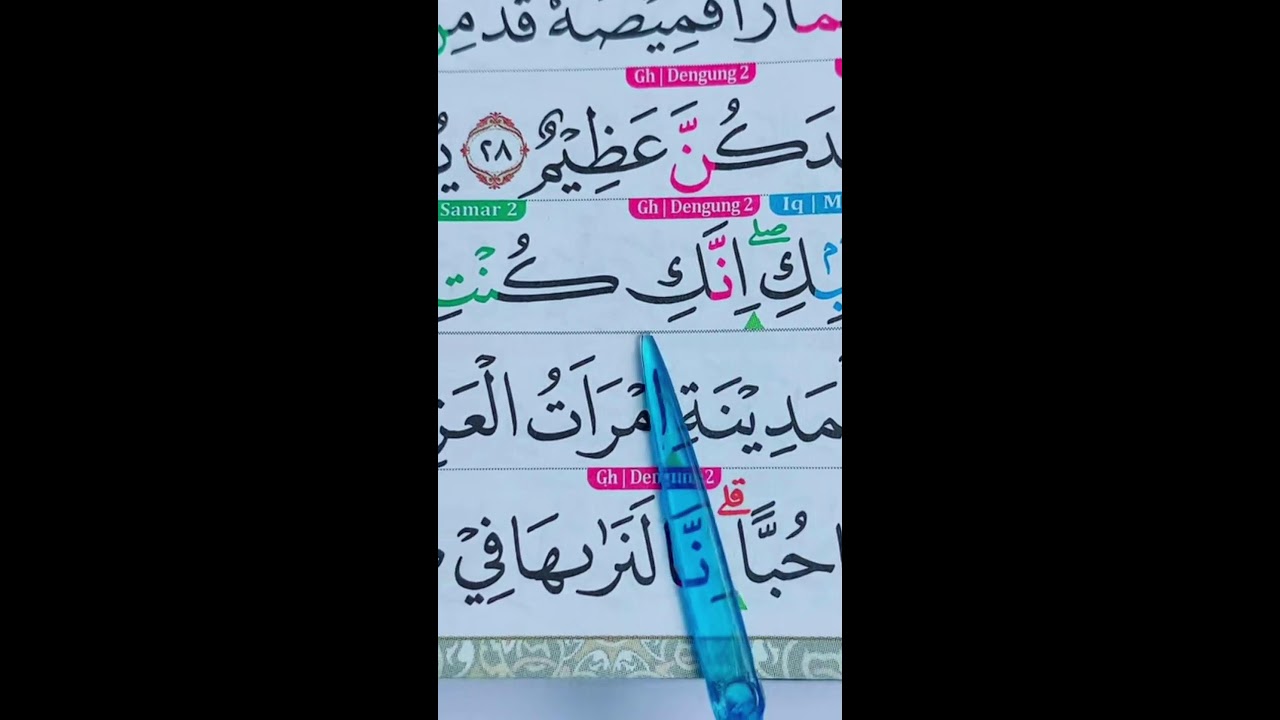 قَمِيْصَهٗ قُدَّ مِنْ
Gh | Dengung 2
كُنَّ عَظِيْمٌ ٢٨
Samar 2 Gh | Dengung 2 Iq | M
بِكِ ۖ اِنَّكِ كُنْتِ
مَدِيْنَةِ امْرَاَتُ الْعَزِ
Gh | Dengung 2
حُبًّا ۗ اِنَّا لَنَرٰىهَا فِيْ